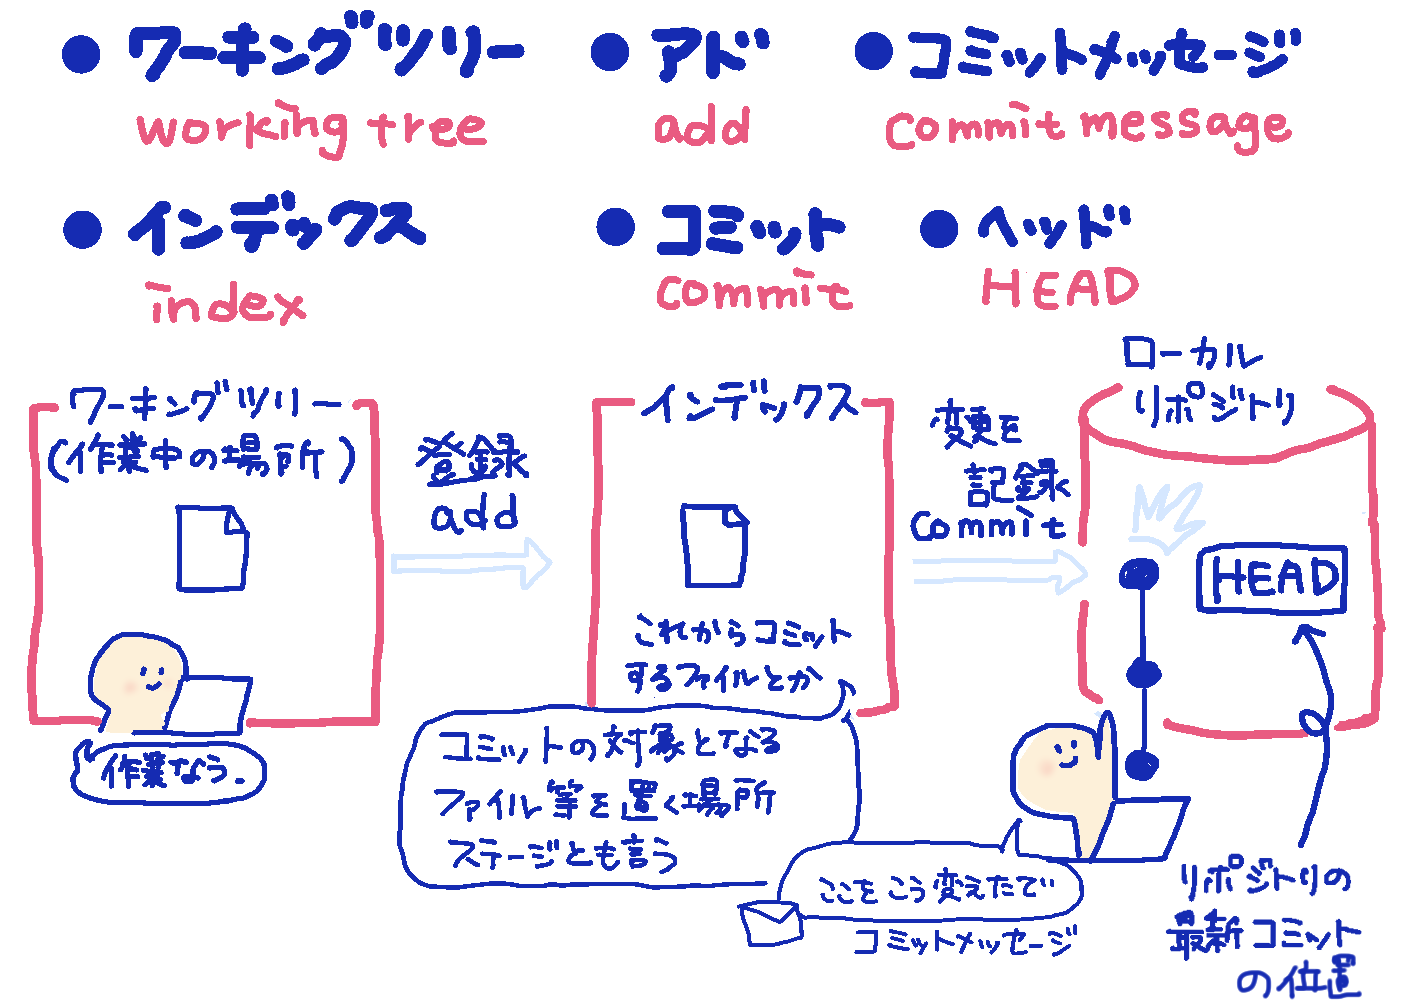 ● ワーキングツリー
working tree
● アド
add
● コミットメッセージ
commit message
● インデックス
index
● コミット
commit
● ヘッド
HEAD
ワーキングツリー
(作業中の場所)
作業なう.
登録
add
インデックス
これからコミット
するファイルとか
コミットの対象となる
ファイル等を置く場所
ステージとも言う
変更を
記録
commit
ローカル
リポジトリ
HEAD
ここをこう変えたで
コミットメッセージ
リポジトリの
最新コミット
の位置